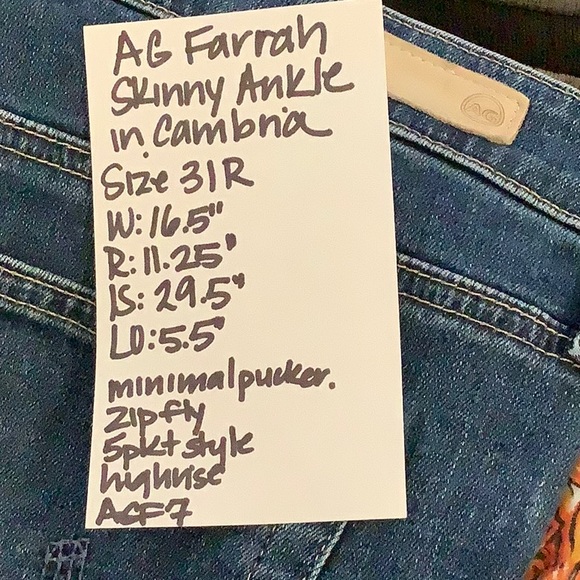 AG Farrah
Skinny Ankle
in Cambria
Size 31R
W: 16.5"
R: 11.25"
IS: 29.5"
LO: 5.5"
minimal pucker.
zip fly
5pkt style
highrise
ACF7
AG